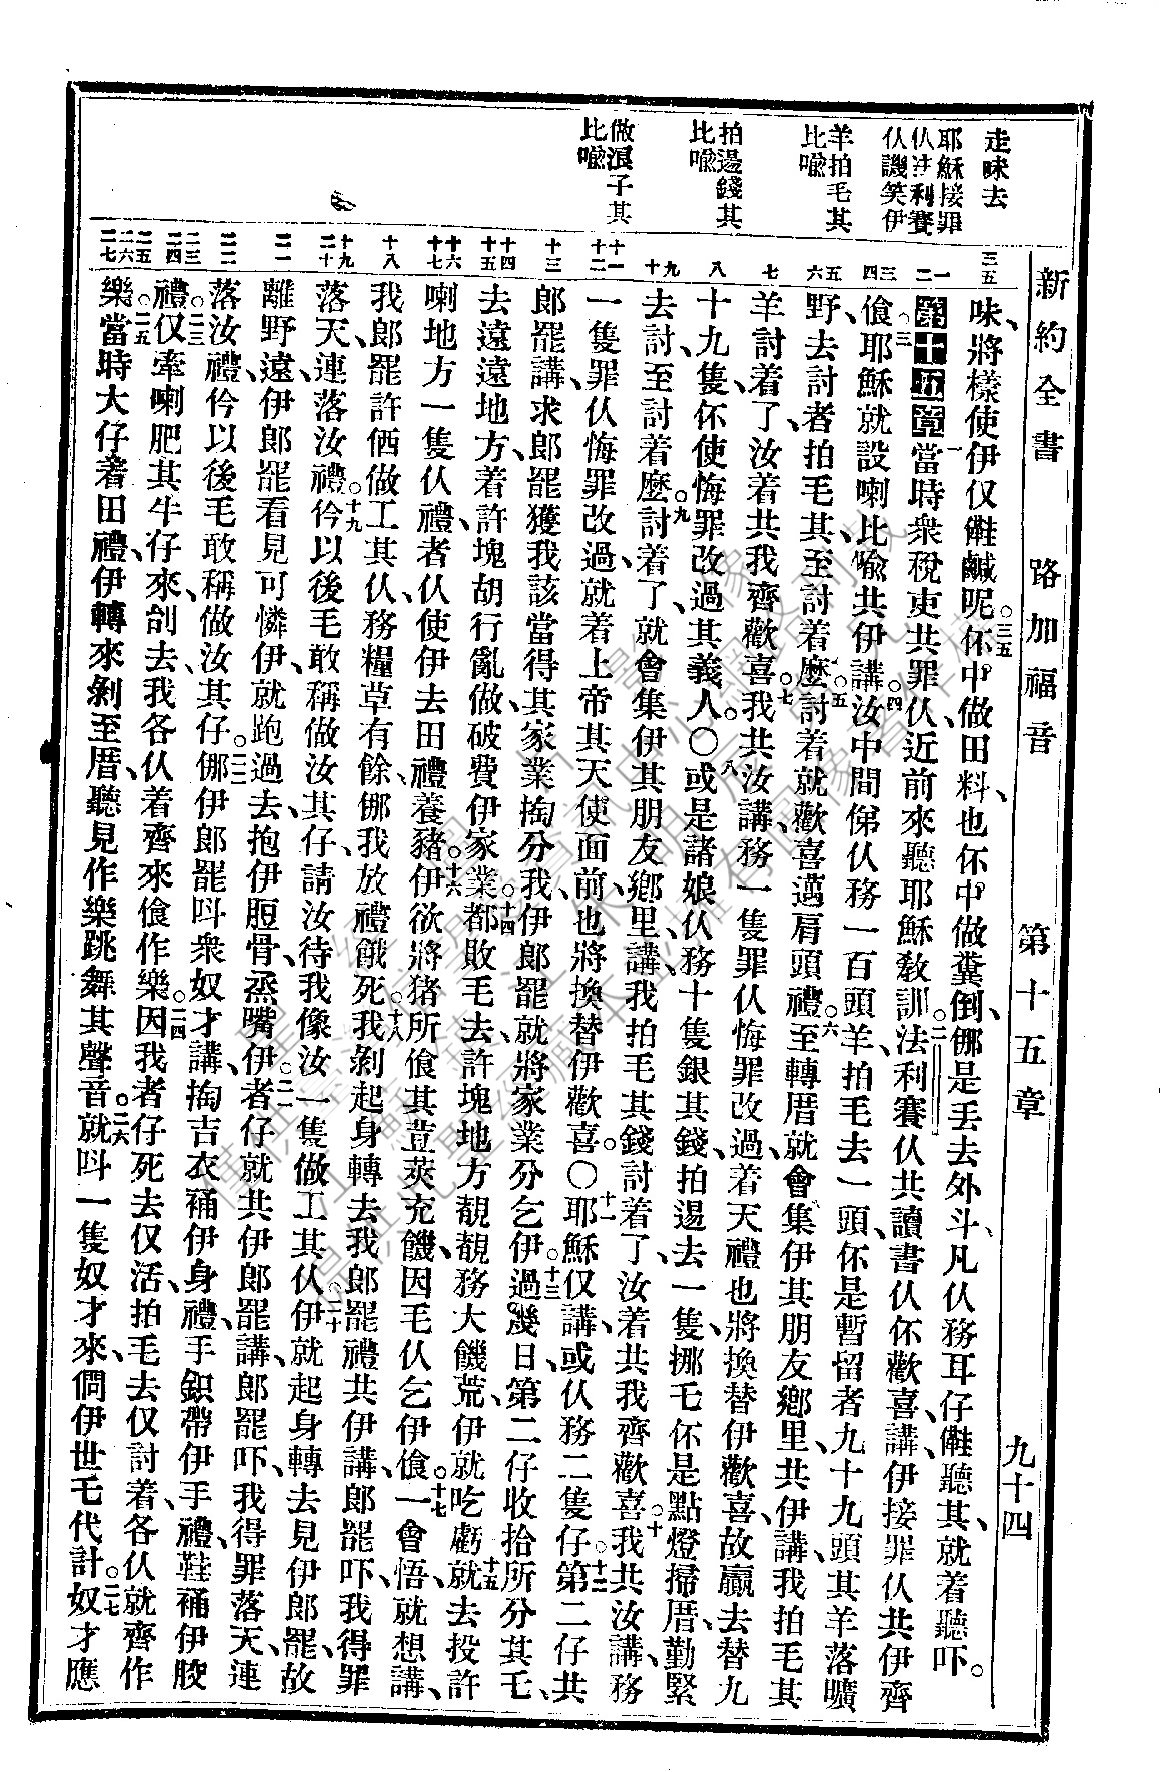 新約全書 路加福音 第十五章 九十四
走味去
耶穌接罪
仫法利賽
仫譏笑伊
羊拍毛其
比喻
拍逷錢其
比喻
做浪子其
比喻
味、將樣使伊仅𠍽鹹呢。三五伓中做田料、也伓中做糞倒、𠲥是丟去外斗、凡仫務耳仔𠍽聽其、就着聽吓。
第十五章一當時衆稅吏共罪仫、近前來聽耶穌教訓。二法利賽仫共讀書仫伓歡喜、講、伊接罪仫共伊齊
飡。三耶穌就設喇比喻共伊講、四汝中間俤仫務一百頭羊、拍毛去一頭、伓是暫留者九十九頭其羊落曠
野、去討者拍毛其、至討着麽。五討着就歡喜邁肩頭禮。六至轉厝、就會集伊其朋友鄉里、共伊講、我拍毛其
羊討着了、汝着共我齊歡喜。七我共汝講、務一隻罪仫悔罪改過、着天禮也將換替伊歡喜、故贏去替九
十九隻伓使悔罪改過其義人。〇八或是諸娘仫務十隻銀其錢、拍逷去一隻、挪毛伓是點燈掃厝、勤緊
去討、至討着麽。九討着了、就會集伊其朋友鄉里、講、我拍毛其錢討着了、汝着共我齊歡喜。十我共汝講、務
一隻罪仫悔罪改過、就着上帝其天使面前、也將換替伊歡喜。〇十一耶穌仅講、或仫務二隻仔。十二第二仔共
郎罷講、求郎罷獲我該當得其家業掏分我、伊郎罷就將家業分乞伊。十三過幾日、第二仔收拾所分其毛、
去遠遠地方、着許塊胡行亂做、破費伊家業。十四都敗毛去、許塊地方靚靚務大饑荒、伊就吃虧。十五就去投許
喇地方一隻仫禮、者仫使伊去田禮養豬。十六伊欲將豬所飡其荳莢充饑、因毛仫乞伊飡。十七一會悟、就想講、
我郎罷許㑚做工其仫、務糧草有餘、𠲥我放禮餓死。十八我剝起身、轉去我郎罷禮、共伊講、郎罷吓、我得罪
落天、連落汝禮。十九伶以後毛敢稱做汝其仔、請汝待我像汝一隻做工其仫。二十伊就起身轉去見伊郎罷、故
離野遠、伊郎罷看見可憐伊、就跑過去、抱伊脰骨、烝嘴伊。二一者仔就共伊郎罷講、郎罷吓、我得罪落天、連
落汝禮、伶以後毛敢稱做汝其仔。二二𠲥伊郎罷呌衆奴才講、掏吉衣補伊身禮、手鈬帶伊手禮、鞋補伊骹
禮。二三仅牽喇肥其牛仔來刣去、我各仫着齊來飡作樂。二四因我者仔死去仅活、拍毛去仅討着、各仫就齊作
樂。二五當時大仔着田禮、伊轉來剝至厝、聽見作樂跳舞其聲音。二六就呌一隻奴才來、問伊世毛代計。二七奴才應